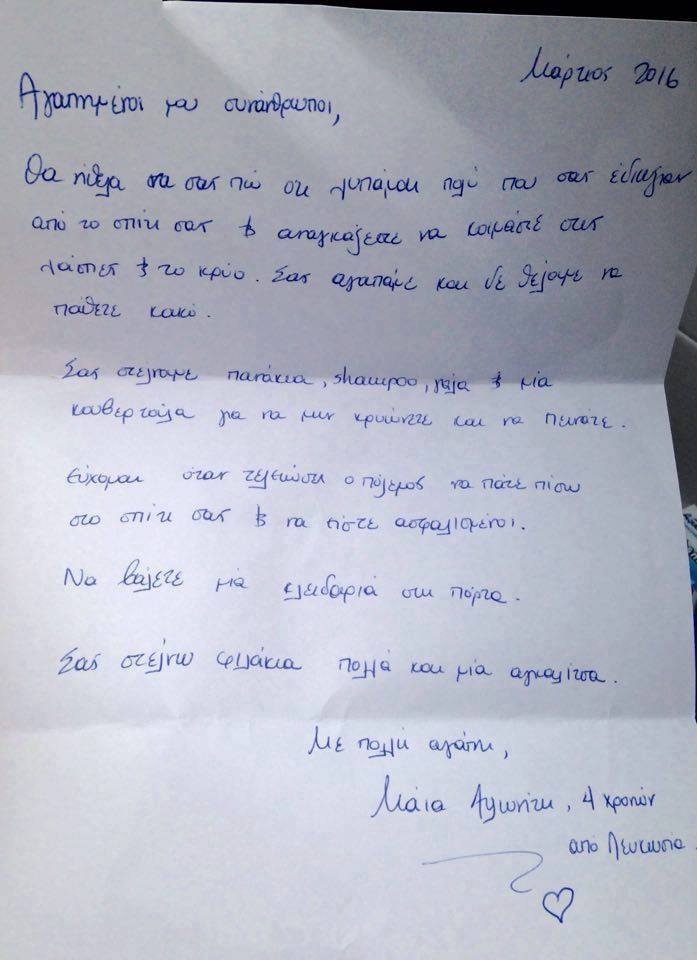 Μάρτιος 2016
Αγαπημένοι μου συνάνθρωποι,
Θα ήθελα να σας πω οτι λυπάμαι πολύ που σας έδιωξαν
από το σπίτι σας & αναγκάζεστε να κοιμάστε στις
λάσπες & το κρύο. Σας αγαπάμε και δε θέλουμε να
πάθετε κακό.
Σας στέλνουμε πανάκια, shampoo, γάλα & μία
κουβερτούλα για να μην κρυώνετε και να πεινάτε.
Εύχομαι όταν τελειώσει ο πόλεμος να πάτε πίσω
στο σπίτι σας & να είστε ασφαλισμένοι.
Να βάλετε μία κλειδαριά στη πόρτα.
Σας στέλνω φιλάκια πολλά και μία αγκαλίτσα.
Με πολλή αγάπη,
Μάια Αλωνίτη, 4 χρονών
από Λευκωσία.